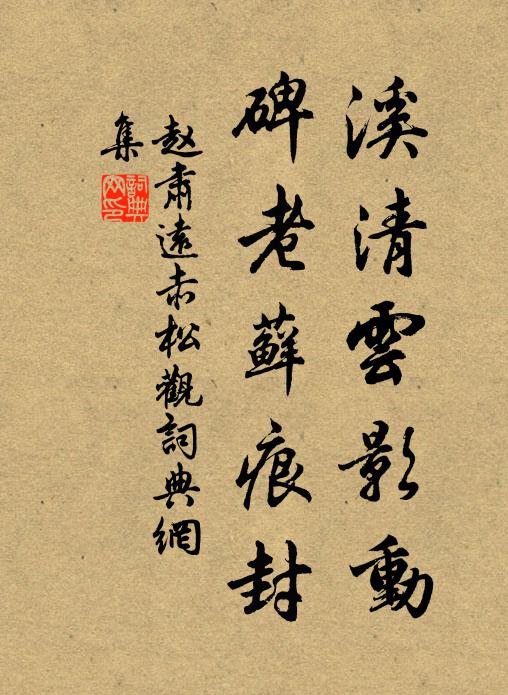 溪清雲影動
碑老蘚痕封
赵肅遠赤松觀詞典網
集
詞典
网印